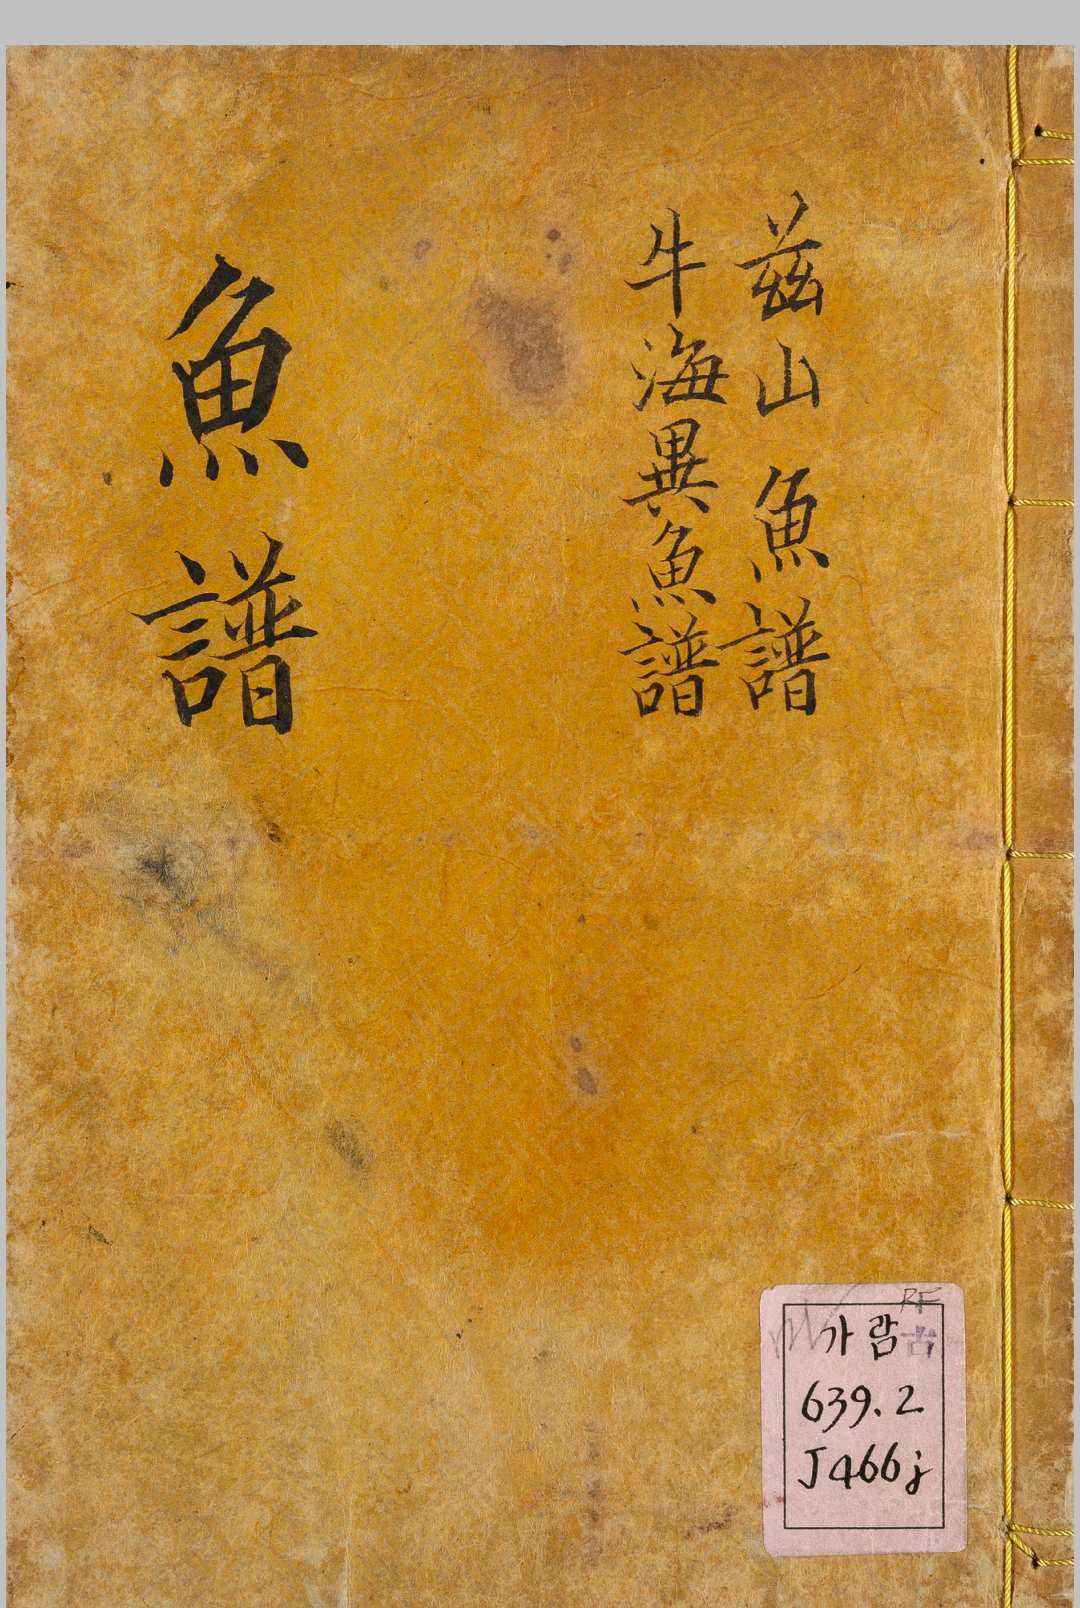 玆山魚譜
牛海異魚譜
魚譜
RF
가람古
639.2
J466j